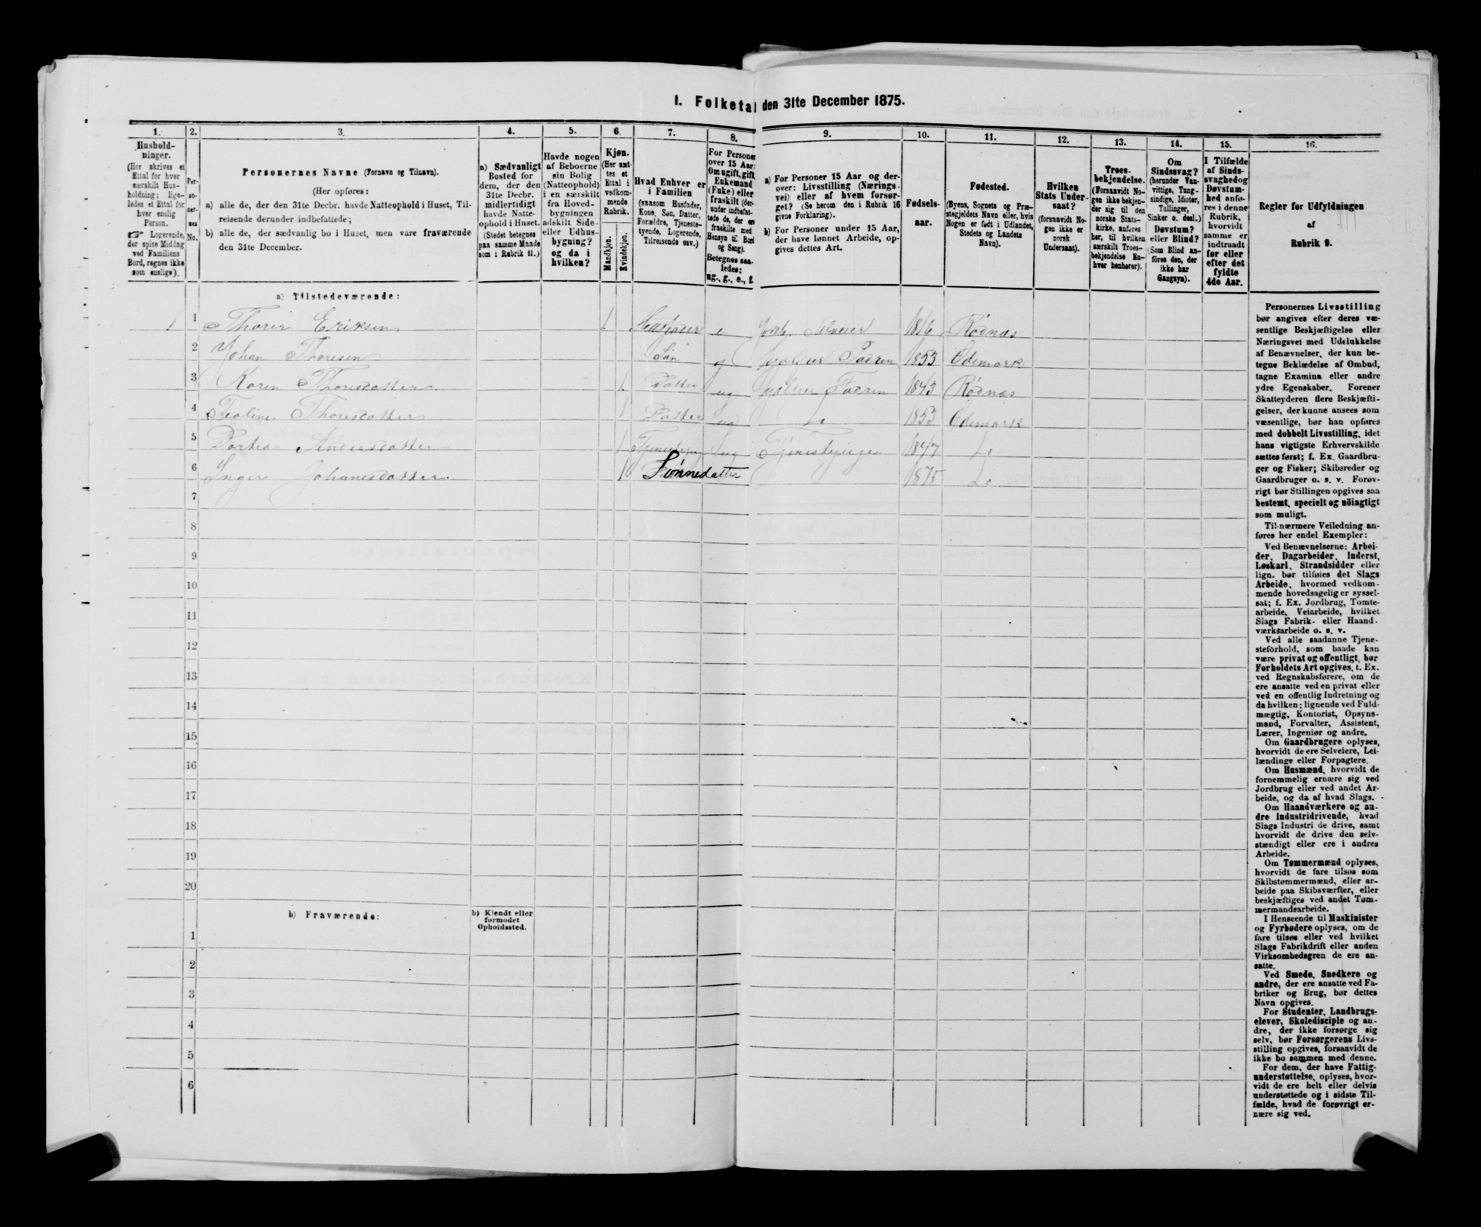 I. Folketal den 31te December 1875.
1. 2. 3. 4. 5. 6. 7. 8. 9. 10. 11. 12. 13. 14. 15. 16.
Hushold-
ninger.
(Her skrives et
Ettal for hver
særskilt Hus-
holdning; lige-
ledes et Ettal for
hver enslig
Person.
☞ Logerende,
der spise Middag
ved Familiens
Bord, regnes ikke
som enslige).
Per-
so-
ner-
nes
No.
Personernes Navne (Fornavn og Tilnavn).
(Her opføres:
a) alle de, der den 31te Decbr. havde Natteophold i Huset, Til-
reisende derunder indbefattede;
b) alle de, der sædvanlig bo i Huset, men vare fraværende
den 31te December.
a) Sædvanligt
Bosted for
dem, der den
31te Decbr.
midlertidigt
havde Natte-
ophold i Huset.
(Stedet betegnes
paa samme Maade
som i Rubrik 11.)
Havde nogen
af Beboerne
sin Bolig
(Natteophold)
i en særskilt
fra Hoved-
bygningen
adskilt Side-
eller Udhus-
bygning?
og da i
hvilken?
Kjøn.
(Her sæt-
tes et
Ettal i
vedkom-
mende
Rubrik.
Mandkjøn.
Kvindekjøn.
Hvad Enhver er
i Familien
(saasom Husfader,
Kone, Søn, Datter,
Forældre, Tjeneste-
tyende, Logerende,
Tilreisende osv.)
For Personer
over 15 Aar:
Om ugift, gift
Enkemand
(Enke) eller
fraskilt (der-
under indbefat-
tede de, der ere
fraskilte med
Hensyn til Bord
og Seng).
Betegnes saa-
ledes:
ug., g., e., f.
a) For Personer 15 Aar og der-
over: Livsstilling (Nærings-
vei) eller af hvem forsør-
get? (Se herom den i Rubrik 16
givne Forklaring).
b) For Personer under 15 Aar,
der have lønnet Arbeide, op-
gives dettes Art.
Fødsels-
aar.
Fødested.
(Byens, Sognets og Præ-
stegjeldets Navn eller, hvis
Nogen er født i Udlandet,
Stedets og Landets
Navn).
Hvilken
Stats Under-
saat?
(forsaavidt No-
gen ikke er
norsk
Undersaat).
Troes-
bekjendelse.
(Forsaavidt No-
gen ikke bekjen-
der sig til den
norske Stats-
kirke, anføres
her, til hvilken
særskilt Troes-
bekjendelse En-
hver henhører).
Om
Sindssvag?
(herunder Van-
vittige, Tung-
sindige, Idioter,
Tullinger,
Sinker o. desl.)
Døvstum?
eller Blind?
(Som Blind an-
føres den, der
ikke har
Gangsyn).
I Tilfælde
af Sinds-
svaghed og
Døvstum-
hed anfø-
res i denne
Rubrik,
hvorvidt
samme er
indtraadt
før eller
efter det
fyldte
4de Aar.
Regler før Udfyldningen
af
Rubrik 9.
a) Tilstedeværende:
1 1 Thorer Eriksen 1 e 1816 Rødnæs
2 Johan Thoresen Søn g 1853 Ødemark
3 Karen Thoresdatter 1 Datter ug 1843 Rødnæs
4 Thoresdatter 1 Datter ug Do 1853 Ødemark
5 Andersdatter 1 ug 1847 Do
6 Inger Johanesdatter 1 Sønnedatter 1875 Do
7
8
9
10
11
12
13
14
15
16
17
18
19
20
b) Fraværende:
b) Kjendt eller
formodet
Opholdssted.
1
2
3
4
5
6
Personernes Livsstilling
bør angives efter deres væ-
sentlige Beskjæftigelse eller
Næringsvei med Udelukkelse
af Benævnelser, der kun be-
tegne Beklædelse af Ombud,
tagne Examina eller andre
ydre Egenskaber. Forener
Skatteyderen flere Beskjæfti-
gelser, der kunne ansees som
væsentlige, bør han opføres
med dobbelt Livsstilling, idet
hans vigtigste Erhvervskilde
sættes først; f. Ex. Gaardbru-
ger og Fisker; Skibsreder og
Gaardbruger o. s. v. Forøv-
rigt bør Stillingen opgives saa
bestemt, specielt og nøiagtigt
som muligt.
Til nærmere Veiledning an-
føres her endel Exempler:
Ved Benævnelserne: Arbei-
der, Dagarbeider, Inderst,
Løskarl, Strandsidder eller
lign. bør tilføies det Slags
Arbeide, hvormed vedkom-
mende hovedsagelig er syssel-
sat; f. Ex. Jordbrug, Tomte-
arbeide, Veiarbeide, hvilket
Slags Fabrik- eller Haand-
værksarbeide o. s. v.
Ved alle saadanne Tjene-
steforhold, som baade kan
være privat og offentligt, bør
Forholdets Art opgives, t. Ex.
ved Regnskabsførere, om de
ere ansatte ved en privat eller
ved en offentlig Indretning og
da hvilken; lignende ved Fuld-
mægtig, Kontorist, Opsyns-
mand, Forvalter, Assistent,
Lærer, Ingeniør og andre.
Om Gaardbrugere oplyses,
hvorvidt de ere Selveiere, Lei-
lændinge eller Forpagtere.
Om Husmænd, hvorvidt de
fornemmelig ernære sig ved
Jordbrug eller ved andet Ar-
beide, og da af hvad Slags.
Om Haandværkere og an-
dre Industridrivende, hvad
Slags Industri de drive, samt
hvorvidt de drive den selv-
stændigt eller ere i andres
Arbeide.
Om Tømmermænd oplyses,
hvorvidt de fare tilsøs som
Skibstømmermænd, eller ar-
beide paa Skibsværfter, eller
beskjæftiges ved andet Tøm-
mermandsarbeide.
I Henseende til Maskinister
og Fyrbødere oplyses, om de
fare tilsøs eller ved hvilket
Slags Fabrikdrift eller anden
Virksomhedsgren de ere an-
satte.
Ved Smede, Snedkere og
andre, der ere ansatte ved Fa-
briker og Brug, bør dettes
Navn opgives.
For Studenter, Landbrugs-
elever, Skoledisciple og an-
dre, der ikke forsørge sig
selv, bør Forsørgerens Livs-
stilling opgives, forsaavidt de
ikke bo sammen med denne.
For dem, der have Fattig-
understøttelse, oplyses, hvor-
vidt de ere helt eller delvis
understøttede og i sidste Til-
fælde, hvad de forøvrigt er-
nære sig ved.